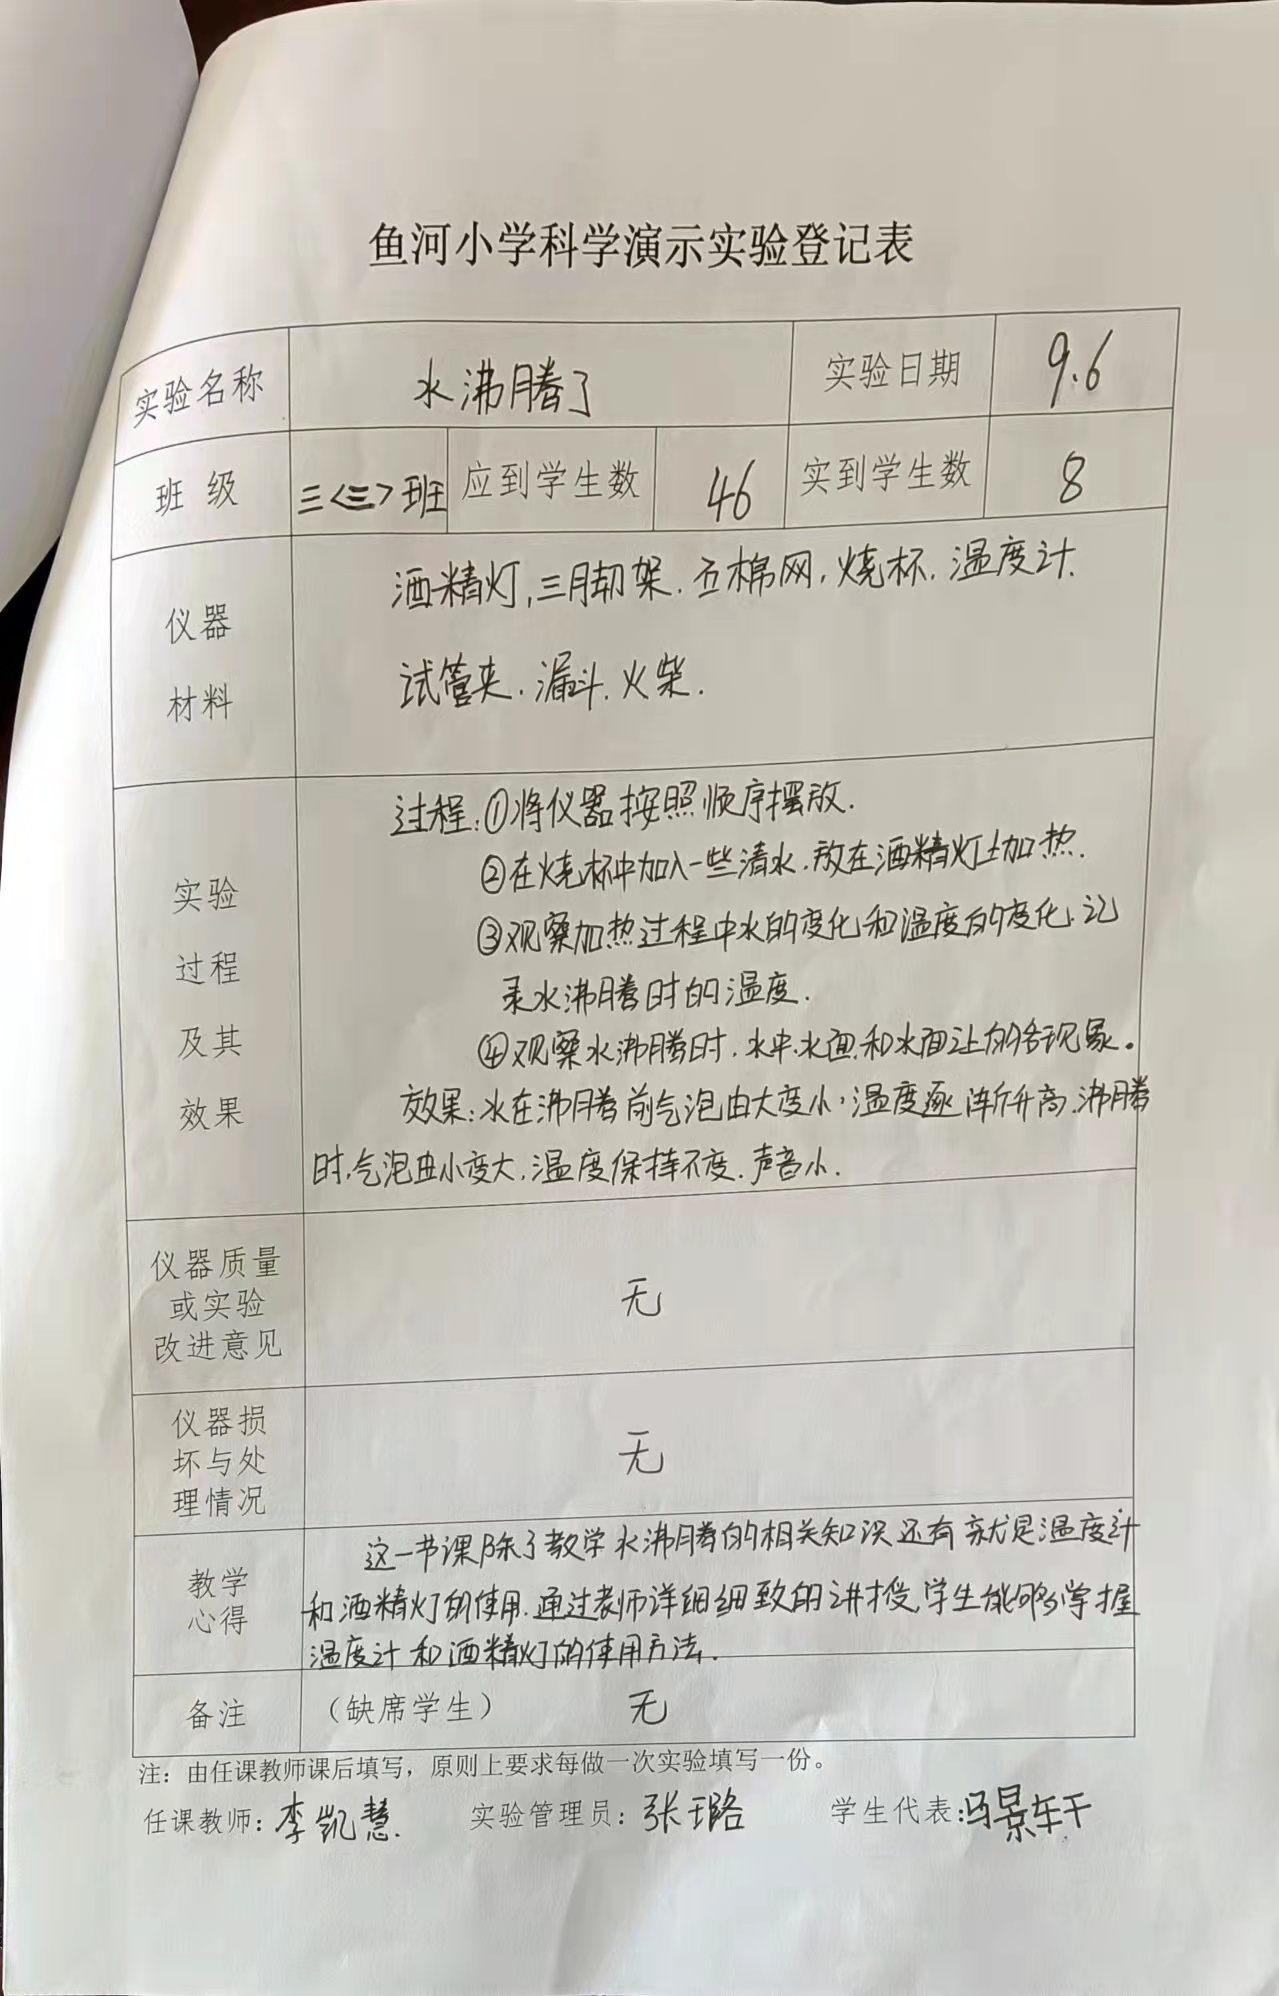 鱼河小学科学演示实验登记表
实验名称 水沸腾了 实验日期 9.6
班 级 三<三>班 应到学生数 46 实到学生数 8
仪器
材料
酒精灯,三脚架.石棉网,烧杯.温度计.
试管夹.漏斗.火柴.
实验
过程
及其
效果
过程:①将仪器按照顺序摆放.
②在烧杯中加入一些清水.放在酒精灯上加热.
③观察加热过程中水的变化和温度的变化.记
录水沸腾时的温度.
④观察水沸腾时.水中.水面.和水面上的各现象。
效果:水在沸腾前气泡由大变小,温度逐渐升高.沸腾
时,气泡由小变大,温度保持不变.声音小.
仪器质量
或实验
改进意见
无
仪器损
坏与处
理情况
无
教学
心得
这一节课除了教学水沸腾的相关知识还有就是温度计
和酒精灯的使用.通过老师详细细致的讲授,学生能够掌握
温度计和酒精灯的使用方法.
备注 (缺席学生) 无
注：由任课教师课后填写，原则上要求每做一次实验填写一份。
任课教师:李凯慧. 实验管理员：张璐 学生代表:马景轩